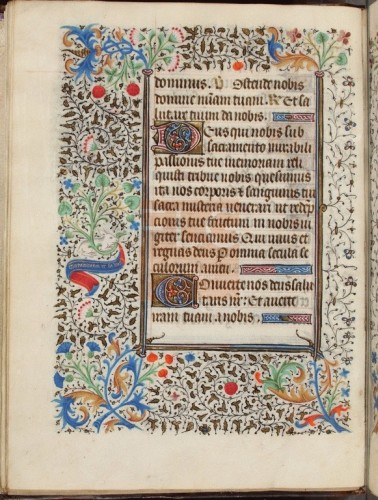 dominus. V. Ostende nobis
domine miam tuam. R. Et sa
lutare tuum da nobis.
Deus qui nobis sub
sacramento mirabili
passionis tue memoriam reli
quisti tribue nobis quesumus
ita nos corporis & sanguinis tui
sacra misteria venerari ut redep
cionis tue fructum in nobis iu
giter senciamus Qui vivis et
regnas deus P omnia secula se
culorum amen.
Converte nos deus salu
taris nr. Et averte
iram tuam a nobis.